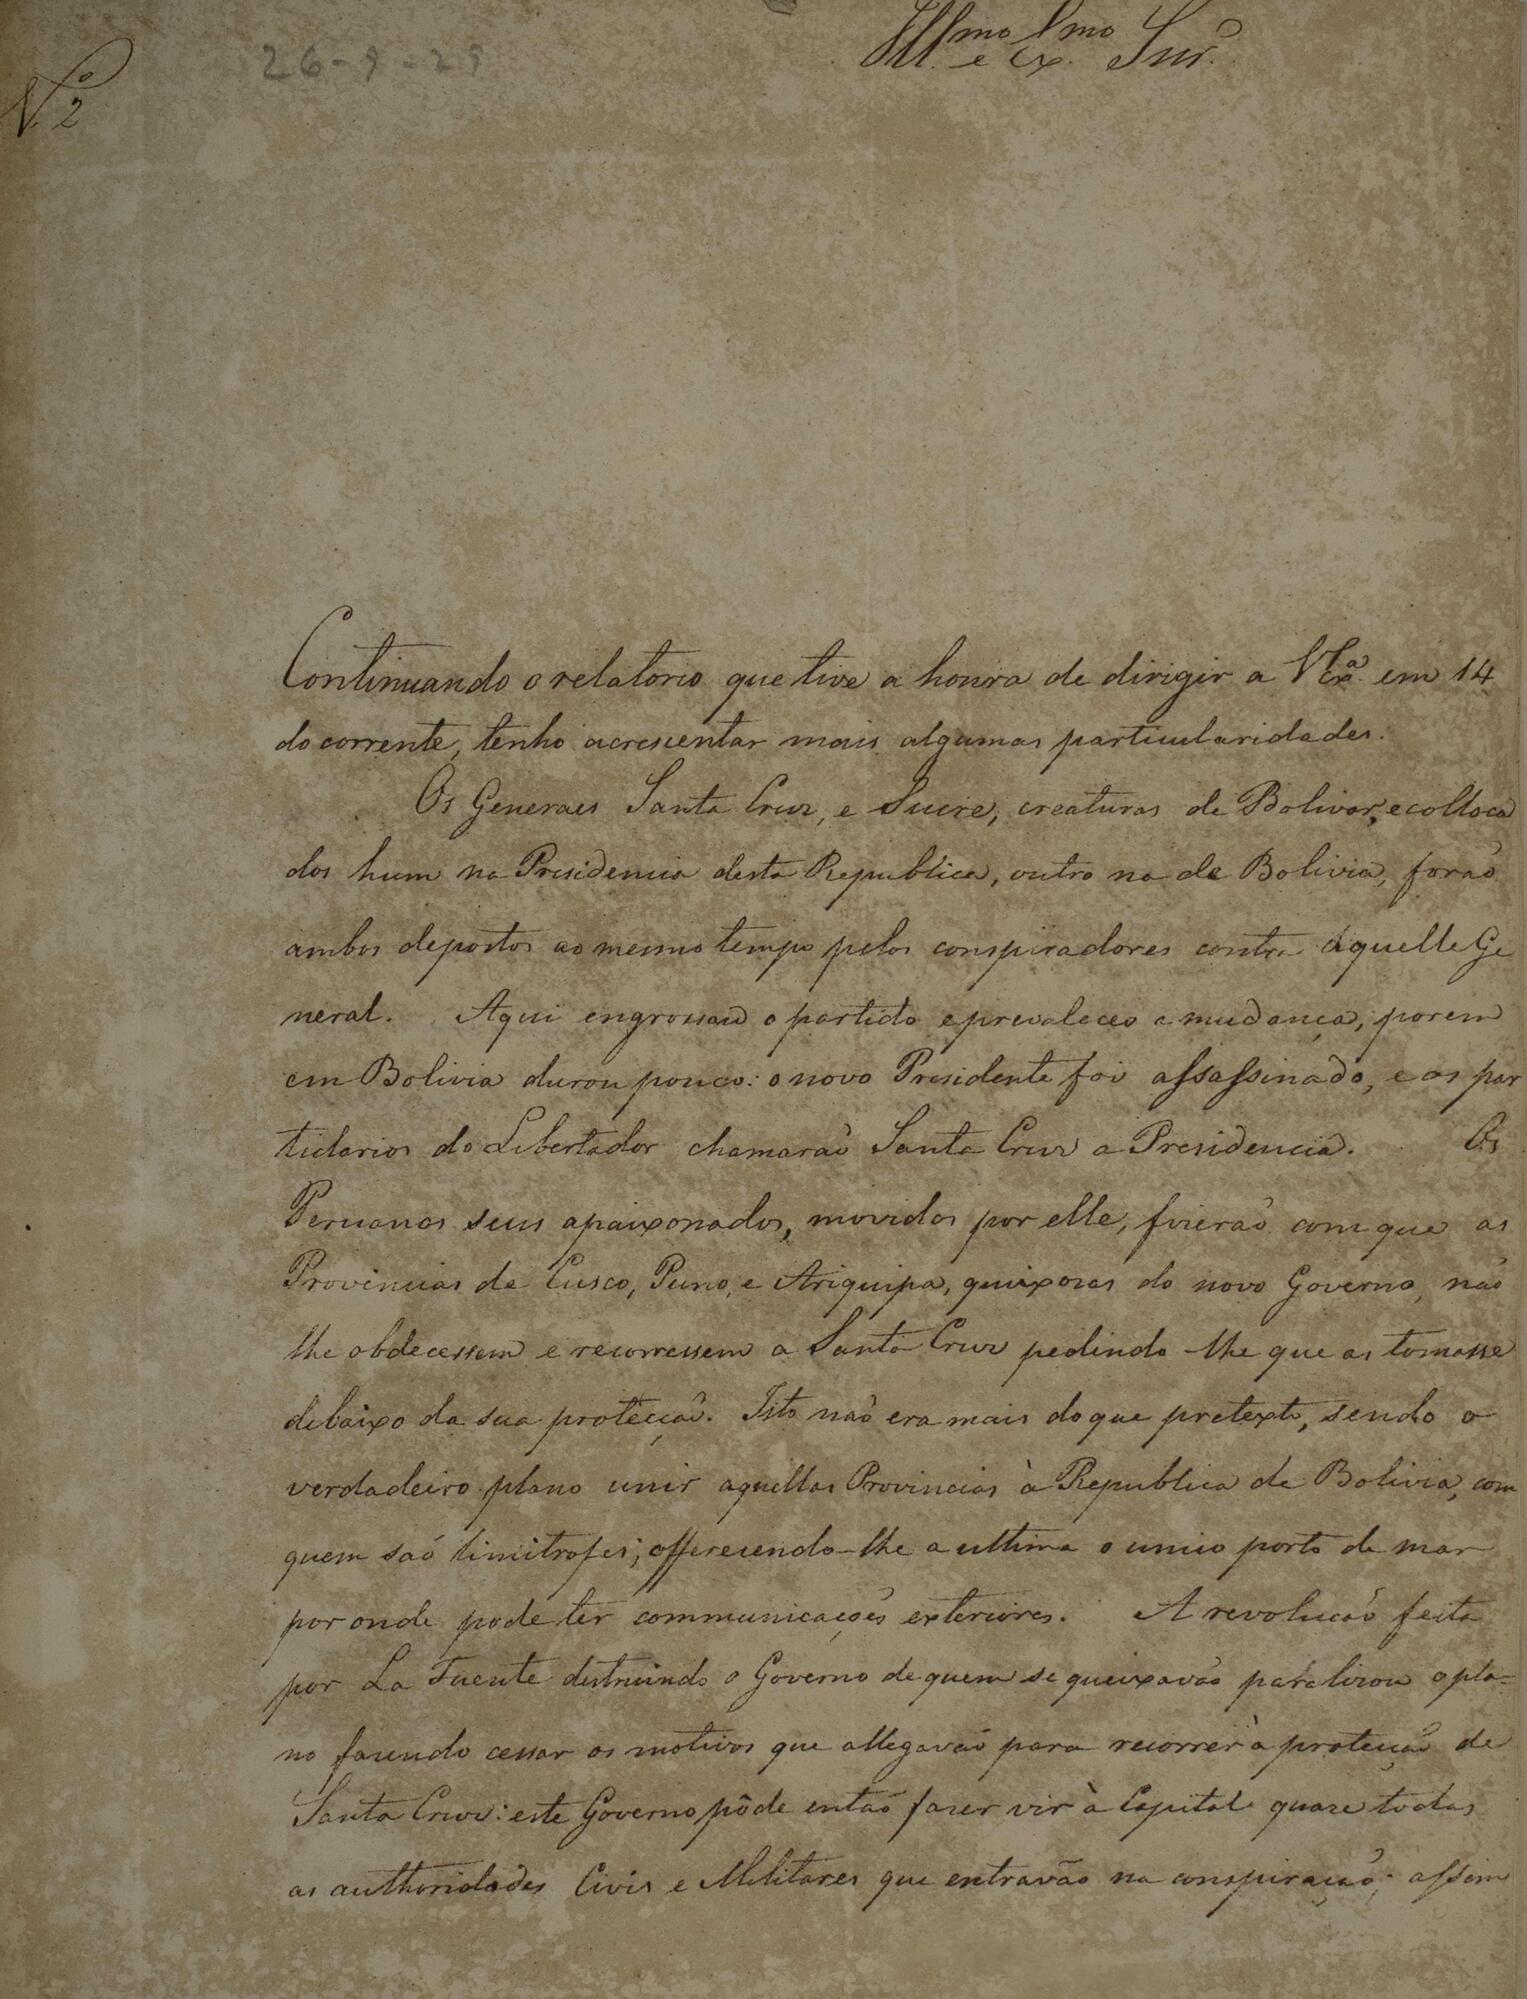 N.º 2
26-9-29
Ill.mo e Ex.mo Snr.
Continuando o relatorio que tive a honra de dirigir a V. Ex.a em 14
do corrente, tenho acrescentar mais algumas particularidades.
Os Generaes Santa Cruz, e Sucre, creaturas de Bolivar, e colloca
dos hum na Presidencia desta Republica, outro na de Bolivia, foraõ
ambos depostos ao mesmo tempo pelos conspiradores contra aquelle Ge
neral. Aqui engrossou o partido e prevaleceo a mudança, porem
em Bolivia durou pouco: o novo Presidente foi assassinado, e os par
tidarios do Libertador chamaraõ Santa Cruz a Presidencia. Os
Peruanos seus apaixonados, movidos por elle, fizeraõ com que as
Provincias de Cusco, Puno, e Ariquipa, queixosas do novo Governo, não
lhe obdecessem e recorressem a Santa Cruz pedindo-lhe que as tomasse
debaixo da sua protecçaõ. Isto naõ era mais do que pretexto, sendo o
verdadeiro plano unir aquellas Provincias à Republica de Bolivia, com
quem saõ limitrofes; offerecendo-lhe a ultima o unico porto de mar
por onde pode ter communicações exteriores. A revoluçaõ feita
por La Fuente destruindo o Governo de quem se queixavão paralizou o pla-
no fazendo cessar os motivos que allegavaõ para recorrer à protecçaõ de
Santa Cruz: este Governo pôde entaõ fazer vir à Capital quaze todas
as authoridades Civis e Militares que entravão na conspiraçaõ; assim